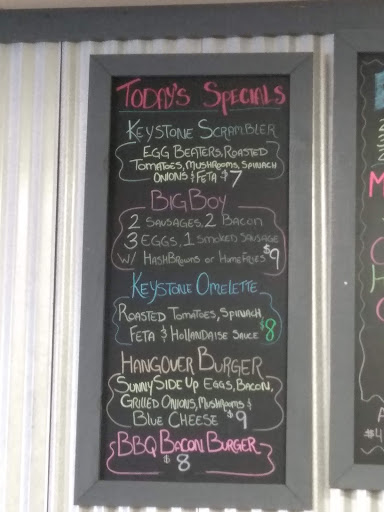 TODAY'S SPECIALS
KEYSTONE SCRAMBLER
EGG BEATERS, ROASTED
TOMATOES, MUSHROOMS, SPINACH
ONIONS & FETA $7
BIG BOY
2 SAUSAGES, 2 BACON
3 EGGS, 1 SMOKED SAUSAGE
W/ HASHBROWNS OR HOMEFRIES $9
KEYSTONE OMELETTE
ROASTED TOMATOES, SPINACH,
FETA & HOLLANDAISE SAUCE $8
HANGOVER BURGER
SUNNY SIDE UP EGGS, BACON,
GRILLED ONIONS, MUSHROOMS &
BLUE CHEESE $9
BBQ BACON BURGER
$8